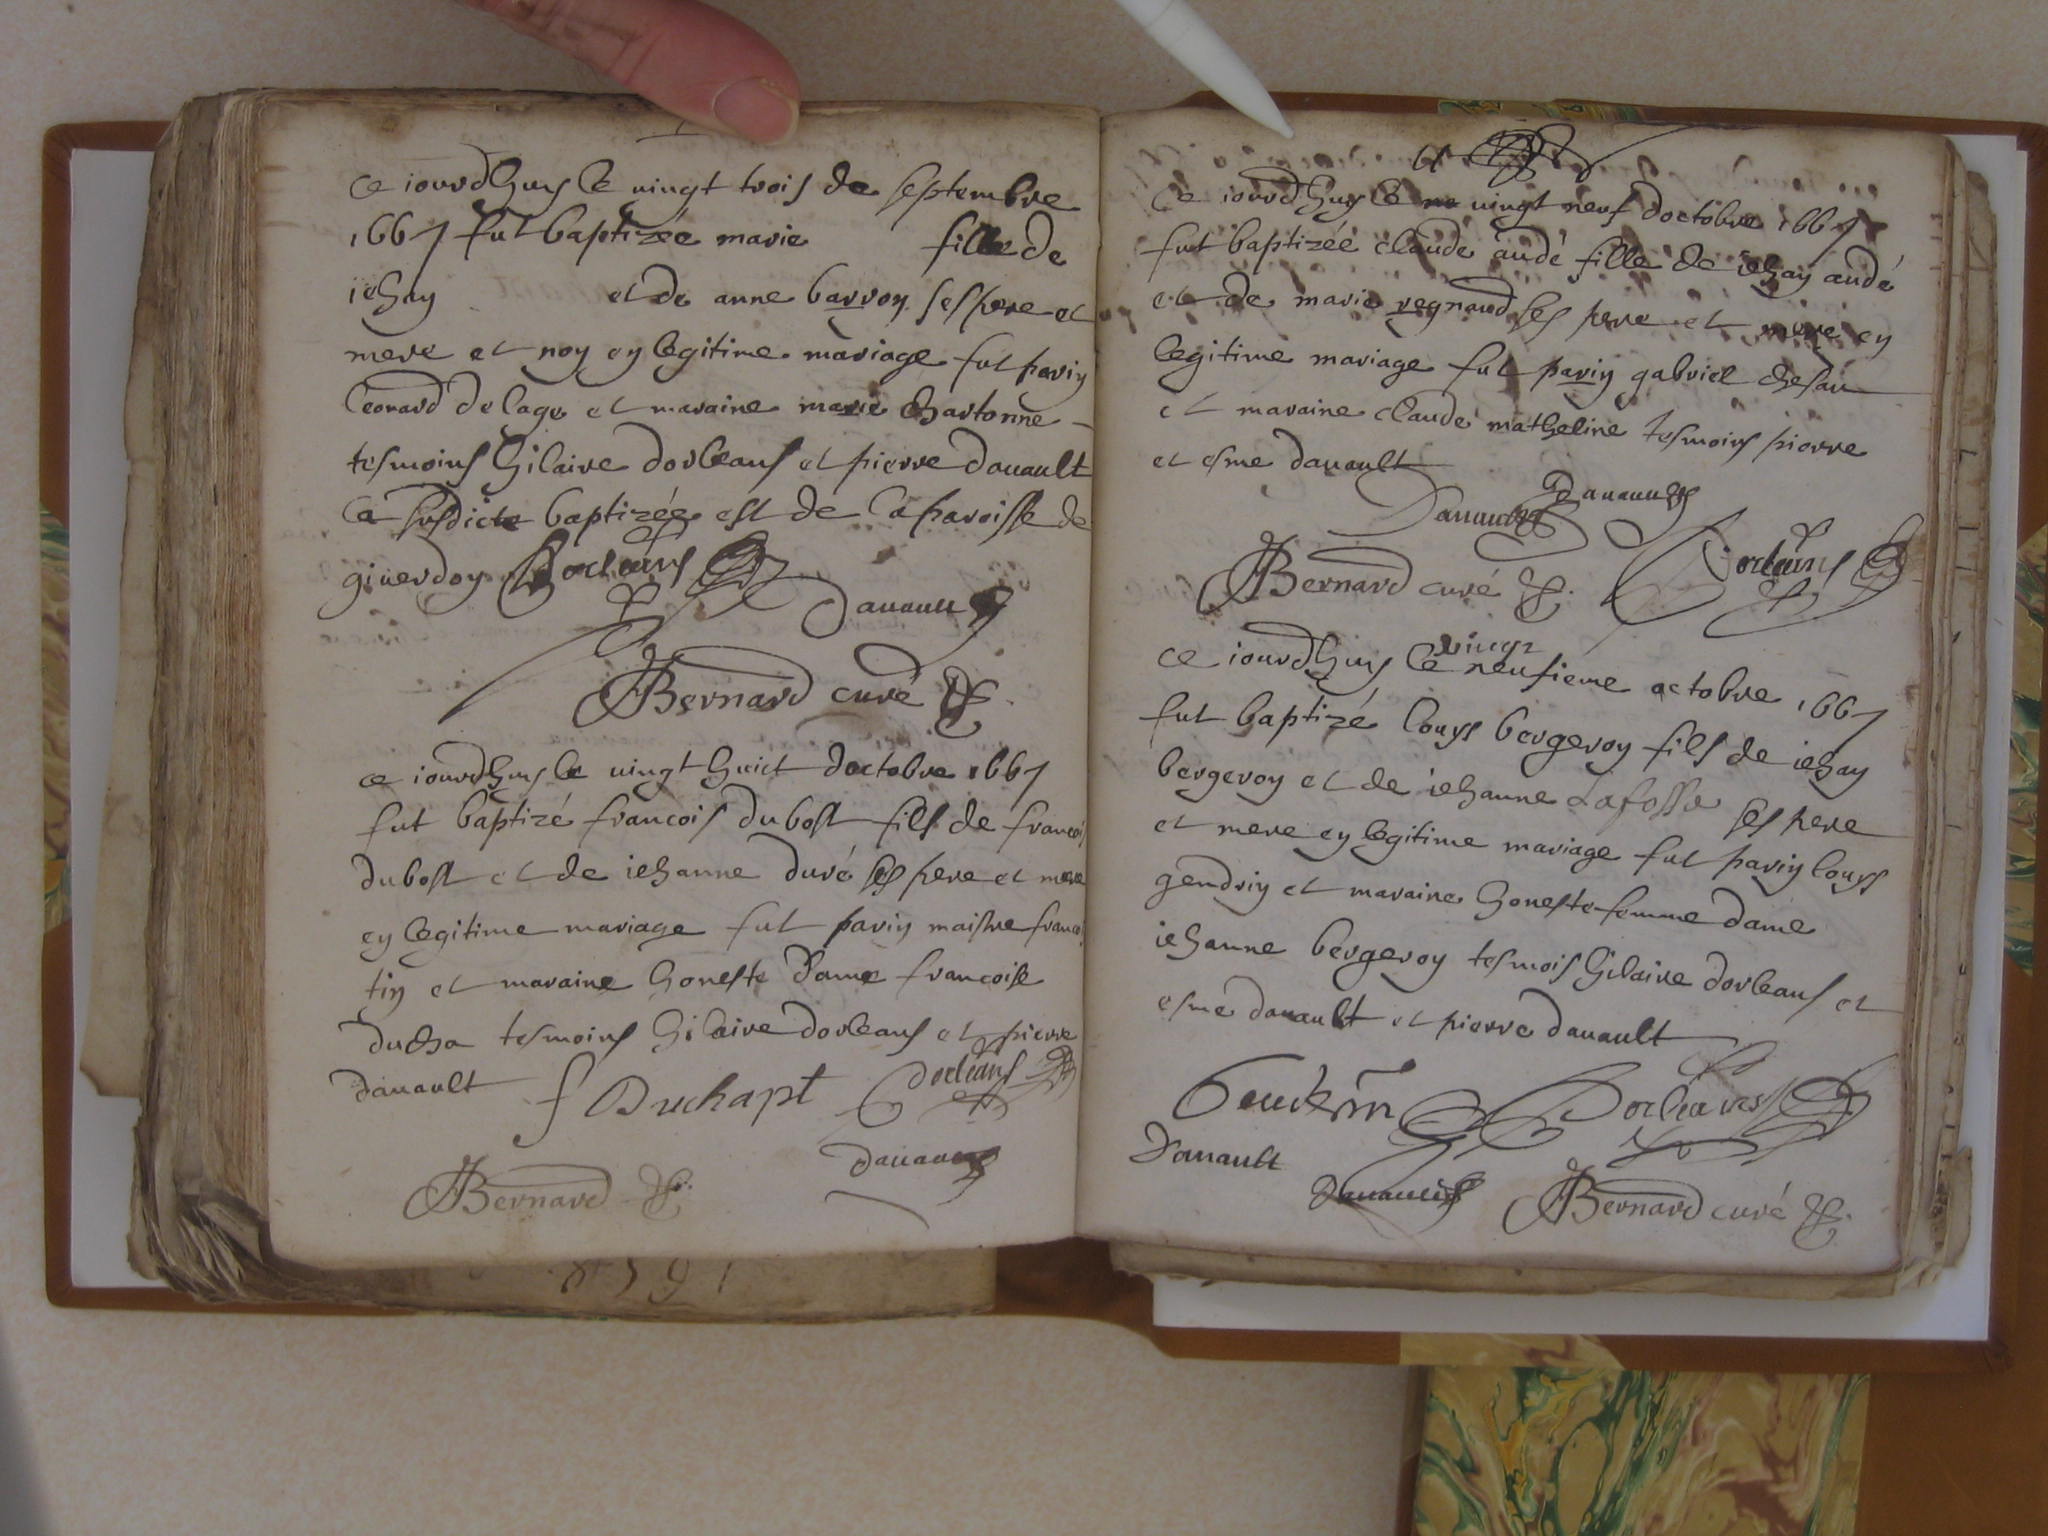 ce iourdhuy le vingt trois de septembre
1667 fut baptizée marie fille de
iehan et de anne barron ses pere et
mere et non en legitime mariage fut parin
leonard delage et maraine marie chartonne
tesmoins hilaire dorleans et pierre dauault
la susdicte baptizée est de la paroisse de
giuerdon Dorleans
Dauault
Bernard curé
ce iourdhuy le vingt huict doctobre 1667
fut baptizé francois dubost fils de francois
dubost et de iehanne duré ses pere et mere
en legitime mariage fut parin maistre francois
tin et maraine honeste dame francoise
ducha tesmoins hilaire dorleans et pierre
dauault f Duchapt Dorleans
Dauault
Bernard
ce iourdhuy le vingt neuf doctobre 1667
fut baptizée claude audé fille de iehan audé
et de marie regnaud ses pere et mere en
legitime mariage fut parin gabriel chesau
et maraine claude matheline tesmoins pierre
et esme dauault
Dauault Dauault
Bernard curé Dorleans
vingt
ce iourdhuy le neufieme octobre 1667
fut baptizé louys bergeron fils de iehan
bergeron et de iehanne Lafosse ses pere
et mere en legitime mariage fut parin louys
gendrin et maraine honeste femme dame
iehanne bergeron tesmois hilaire dorleans et
esme dauault et pierre dauault
Dorleans
Dauault
Dauault Bernard curé